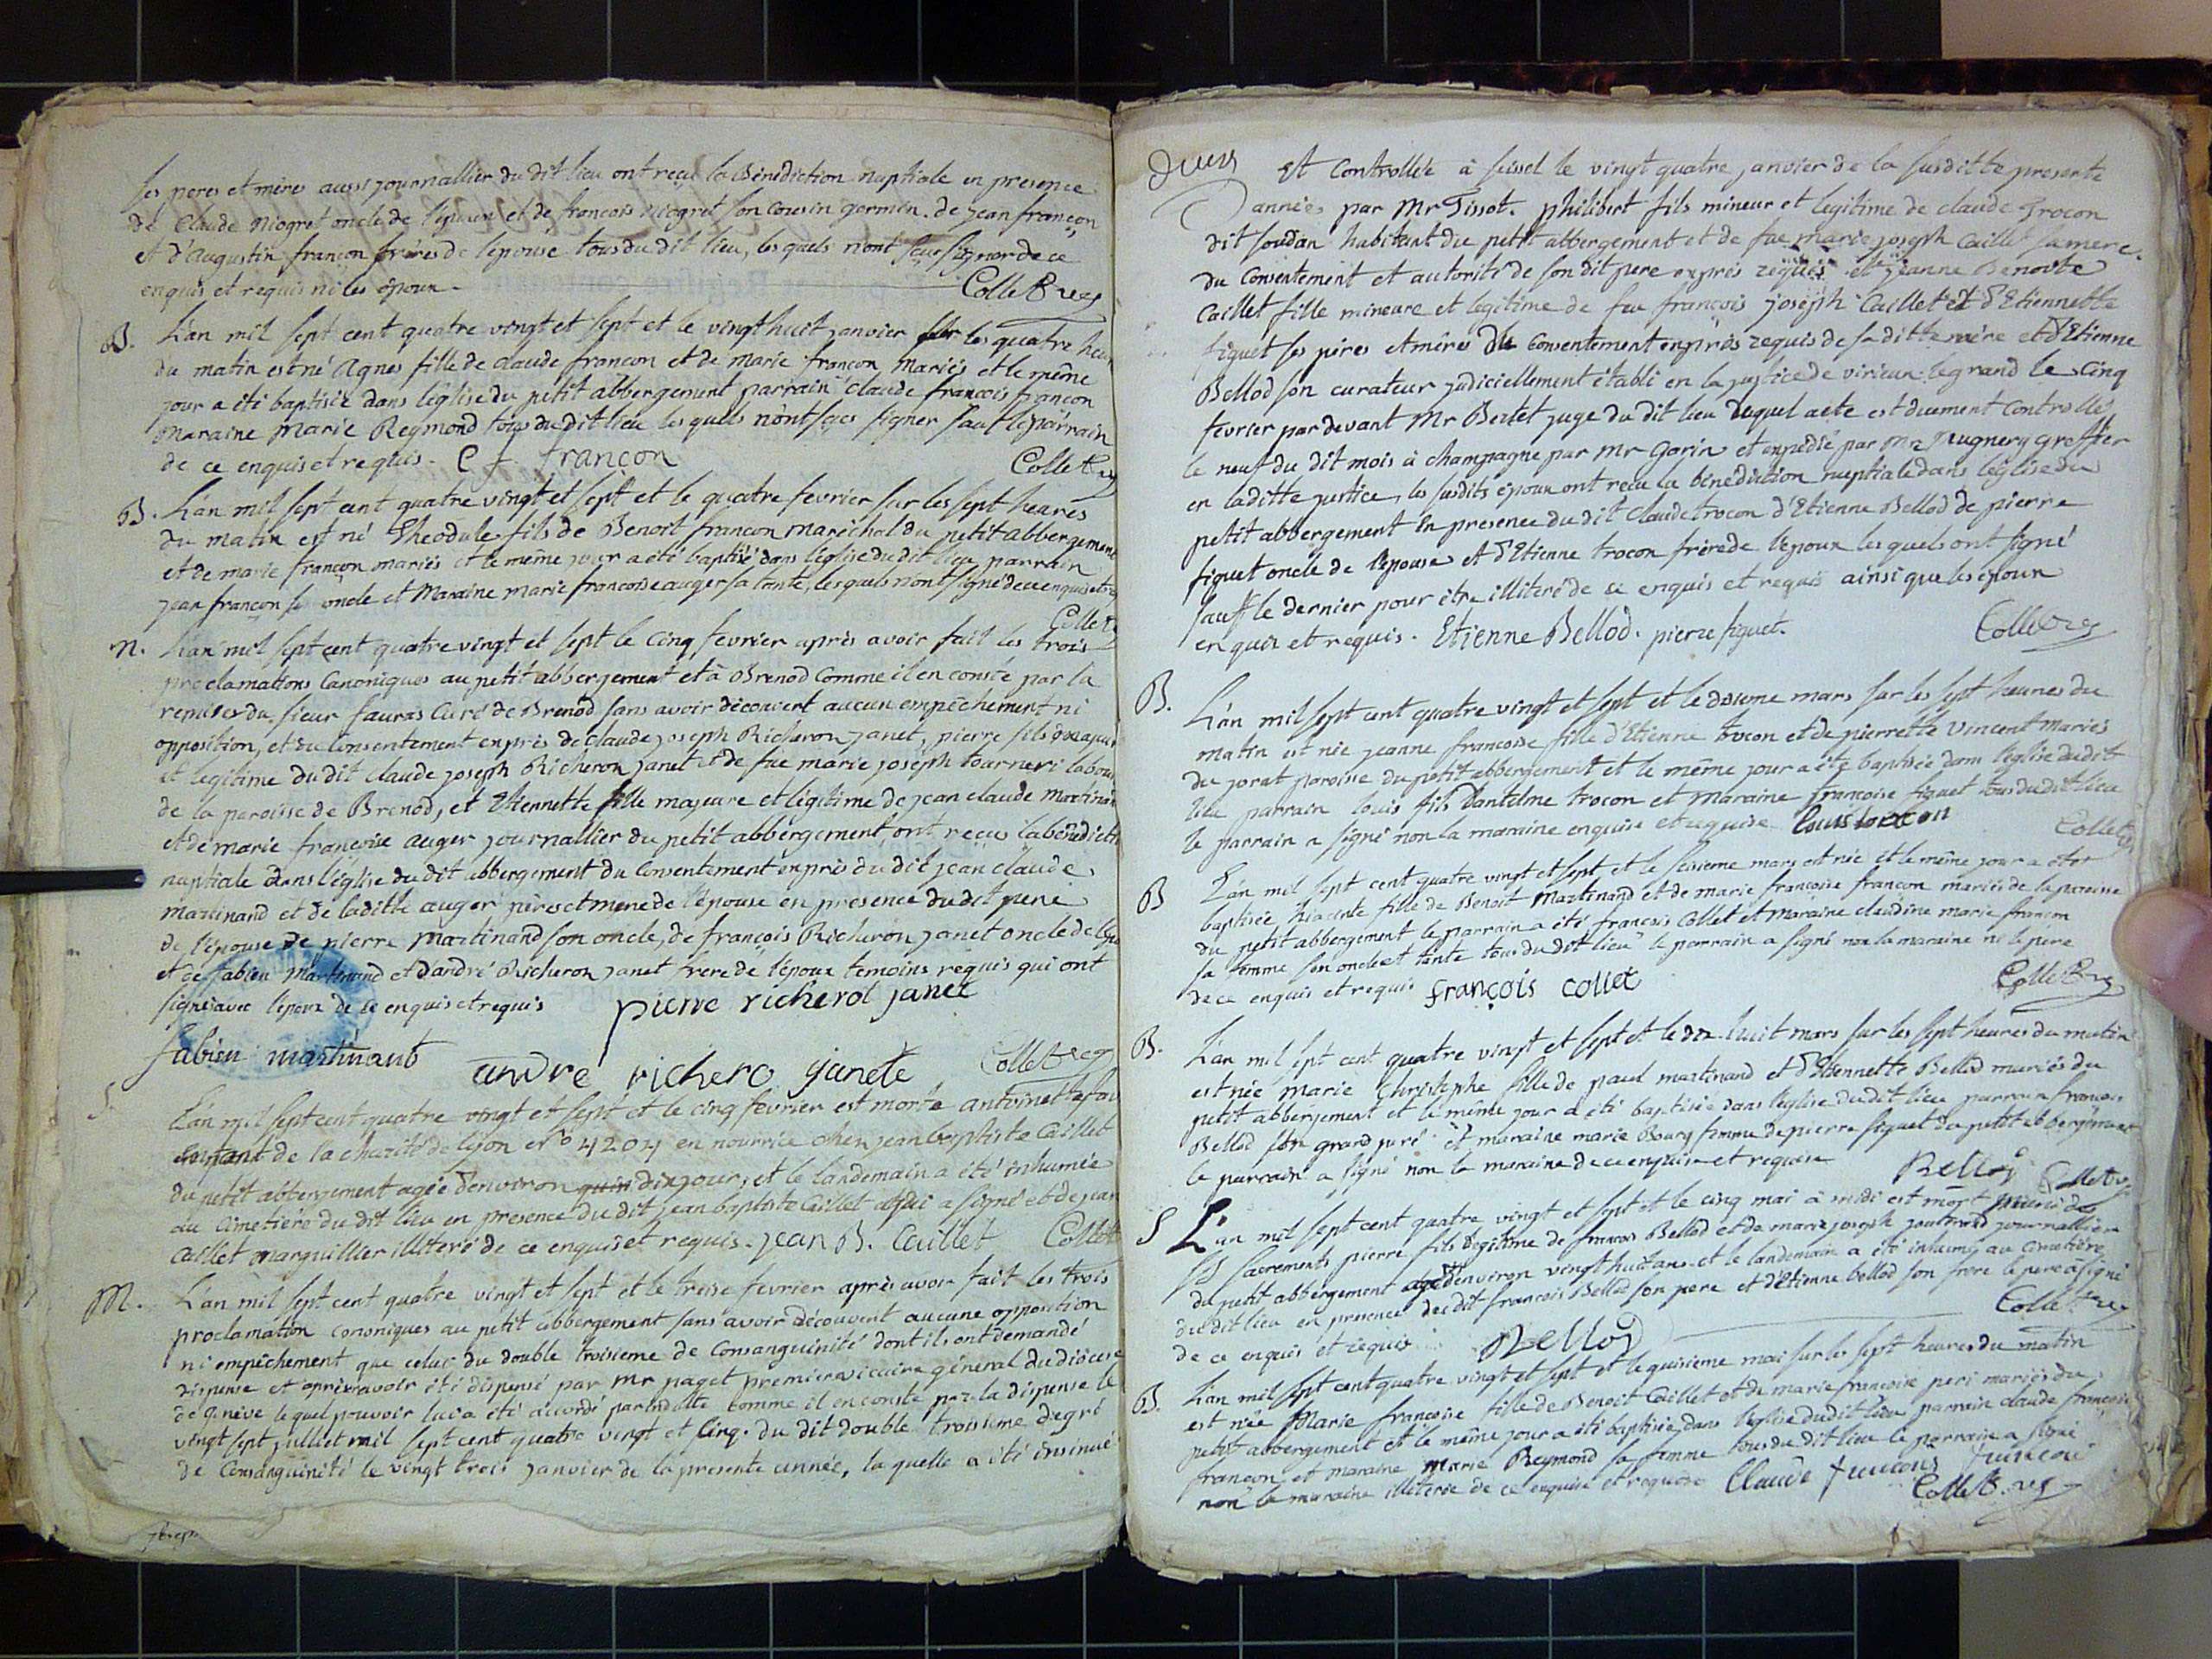 ses peres et mères aussi journallier du dit lieu ont reçu la Bénédiction nuptiale en presence
de Claude niogret oncle de l'epoux et de francois niogret son cousin germin. de jean françon
et d'augustin françon frères de l'epouse tous du dit lieu, les quels n'ont sçus signer de ce
enquis et requis ni les époux.
Collet
B. L'an mil sept cent quatre vingt et sept et le vingt huit janvier sur les quatre heures
du matin est né Agnes fille de claude francon et de marie françon mariés et le même
jour a été baptisée dans l'église du petit abbergement parrain claude françois françon
maraine marie Reymond tous du dit lieu les quels n'ont sçus signer sauf le parrain
de ce enquis et requis. C f françon
Collet
B. L'an mil sept cent quatre vingt et sept et le quatre fevrier sur les sept heures
du matin est né Théodule fils de Benoit francon maréchal du petit abbergement
et de marie françon mariés et le même jour a été baptisé dans l'église du dit lieu parrain
jean françon son oncle et Maraine marie francoise auger sa tante, les quels n'ont signé de ce enquis et
Collet
M. L'an mil sept cent quatre vingt et sept le cinq fevrier après avoir fait les trois
proclamations Canoniques au petit abbergement et à Brenod comme il en conste par la
remises du sieur fauras Curé de Brenod sans avoir découvert aucun empêchement ni
opposition, et du consentement exprès de claude joseph Richeron janet, pierre fils majeur
et legitime du dit claude joseph Richeron janet et de fue marie joseph tourneri labour
de la paroisse de Brenod, et Etiennette fille majeure et légitime de jean claude martinand
et de marie françoise auger journallier du petit abbergement, ont reçus la bénédict
nuptiale dans l'église du dit abbergement du consentement exprès du dit jean claude
martinand et de la ditte auger père et mere de l'epouse en presence du dit pere
de l'épouse de pierre martinand son oncle, de françois Richeron janet oncle de l'epo
et de fabien martinand et d'andré Richeron janet frere de l'époux temoins requis qui ont
signés avec l'epoux de ce enquis et requis pierre richerot janet
fabien martinand andre richero janete Collet
S. L'an mil sept cent quatre vingt et sept et le cinq fevrier est morte antoinette
enfant de la charité de lyon n° 4204 en nourrice chez jean baptiste Caillet
du petit abbergement agée d'environ dix jour, et le landemain a été inhumée
au cimetière du dit lieu en presence du dit jean baptiste Caillet qui a signé et de jean
Caillet marguillier illiteré de ce enquis et requis. jean B. Caillet Collet
M. L'an mil sept cent quatre vingt et sept et le treise fevrier après avoir fait les trois
proclamation cononiques au petit abbergement sans avoir découvert aucune opposition
ni empêchement que celui du double troisieme de consanguinité dont ils ont demandé
dispense et après avoir été dispensé par Mr paget premier vicaire général du diocese
de genève le quel pouvoir lui a été accordé par indulte comme il en conste par la dispense le
vingt sept juillet mil sept cent quatre vingt et cinq. du dit double troisieme degré
de consanguinité le vingt trois janvier de la presente année, la quelle a été insinué
Et Controllée à seissel le vingt quatre janvier de la susditte presente
année, par Mr Tissot. philibert fils mineur et legitime de claude trocon
dit soudan habitant du petit abbergement et de fue marie joseph Caillet sa mere.
du consentement et autorité de son dit pere exprès requis. et jeanne Benoite
Caillet fille mineure et légitime de feu françois joseph Caillet et d'Etiennette
figuet ses pères et mères du consentement exprès requis de sa ditte mère et d'Etienne
Bellod son curateur judiciellement établi en la justice de virieux le grand le cinq
fevrier par devant Mr Bertet juge du dit lieu duquel acte est duement controllé
le neuf du dit mois à champagne par Mr Garin et expedié par Mr greffier
en la ditte justice, les susdits époux ont reçu la bénédiction nuptiale dans l'église du
petit abbergement En presence du dit Claude trocon d'Etienne Bellod de pierre
figuet oncle de l'épouse et d'Etienne trocon frère de l'époux les quels ont signé
sauff le dernier pour être illiteré de ce enquis et requis ainsi que les époux
enquis et requis. Etienne Bellod. pierre figuet.
Collet
B. L'an mil sept cent quatre vingt et sept et le mars sur les sept heures du
matin est née jeanne francoise fille d'Etienne trocon et de pierrette vincent mariés
du jorat paroisse du petit abbergement et le même jour a été baptisée dans l'église du dit
lieu parrain louis fils d'antelme trocon et maraine françoise figuet tous du dit lieu
le parrain a signé non la maraine enquise et requise. louis trocon
Collet
B L'an mil sept cent quatre vingt et sept, et le seisieme mars est née et le même jour a été
baptisée hiacinte fille de Benoit Martinand et de marie françoise françon mariés de la paroisse
du petit abbergement le parrain a été francois Collet et maraine claudine marie francon
sa femme son oncle et tante tous du dit lieu le parrain a signé non la maraine ni le père
de ce enquis et requis françois collet
Collet
B. L'an mil sept cent quatre vingt et sept et le dix huit mars sur les sept heures du matin
est née marie Christophe fille de paul martinand et d'Etiennette Bellod mariés du
petit abbergement et le même jour a été baptisée dans l'église du dit lieu parrain françois
Bellod son grand père et maraine marie Bourg femme de pierre figuet du petit abbergement
le parrain a signé non la maraine de ce enquise et requise Bellod Collet
S L'an mil sept cent quatre vingt et sept et le cinq mai à midi est mort muni des
SS sacrements pierre fils légitime de francois Bellod et de marie joseph journallier
du petit abbergement agé d'environ vingt huit ans et le landemain a été inhumé au cimetière
du dit lieu en presence du dit francois Bellod son pere et d'Etienne bellod son frere le pere a signé
de ce enquis et requis. Bellod
Collet
B. L'an mil sept cent quatre vingt et sept et le quisieme mai sur les sept heures du matin
est née Marie françoise fille de Benoit Caillet et de marie francoise peri mariés du
petit abbergement et le même jour a été baptisée dans l'église du dit lieu parrain claude françois
francon et maraine marie Reymond sa femme tous du dit lieu le parrain a signé
non la maraine illiterée de ce enquise et requise Claude francois francon
Collet